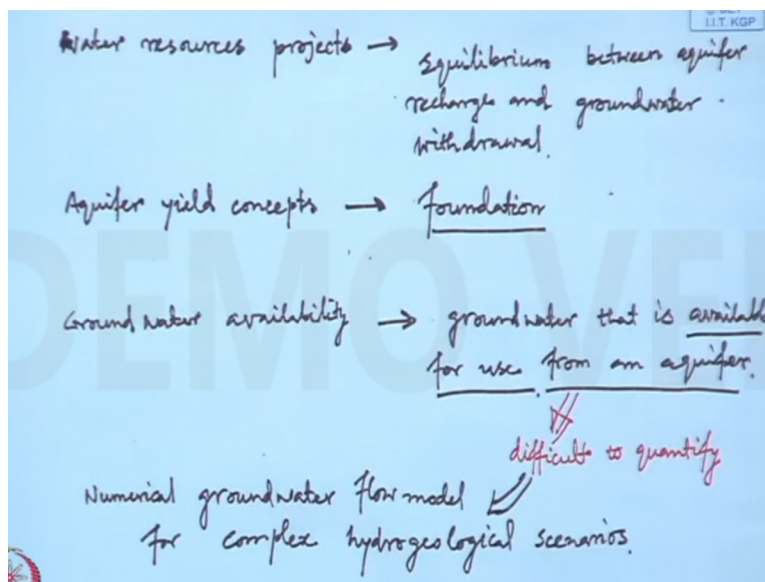 I.I.T. KGP
Water resources projects → Equilibrium between aquifer
recharge and groundwater
withdrawal.
Aquifer yield concepts → foundation
Groundwater availability → groundwater that is availabl
for use from an aquifer.
difficult to quantify
Numerical groundwater flow model
for complex hydrogeological scenarios.
DEMO VE